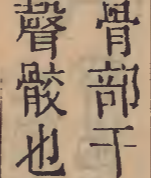 骨部干
聲骸也